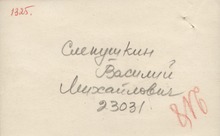 1325.
Слепушкин
Василий
Михайлович
23031